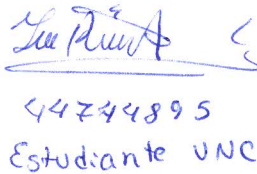 44744895
Estudiante UNC